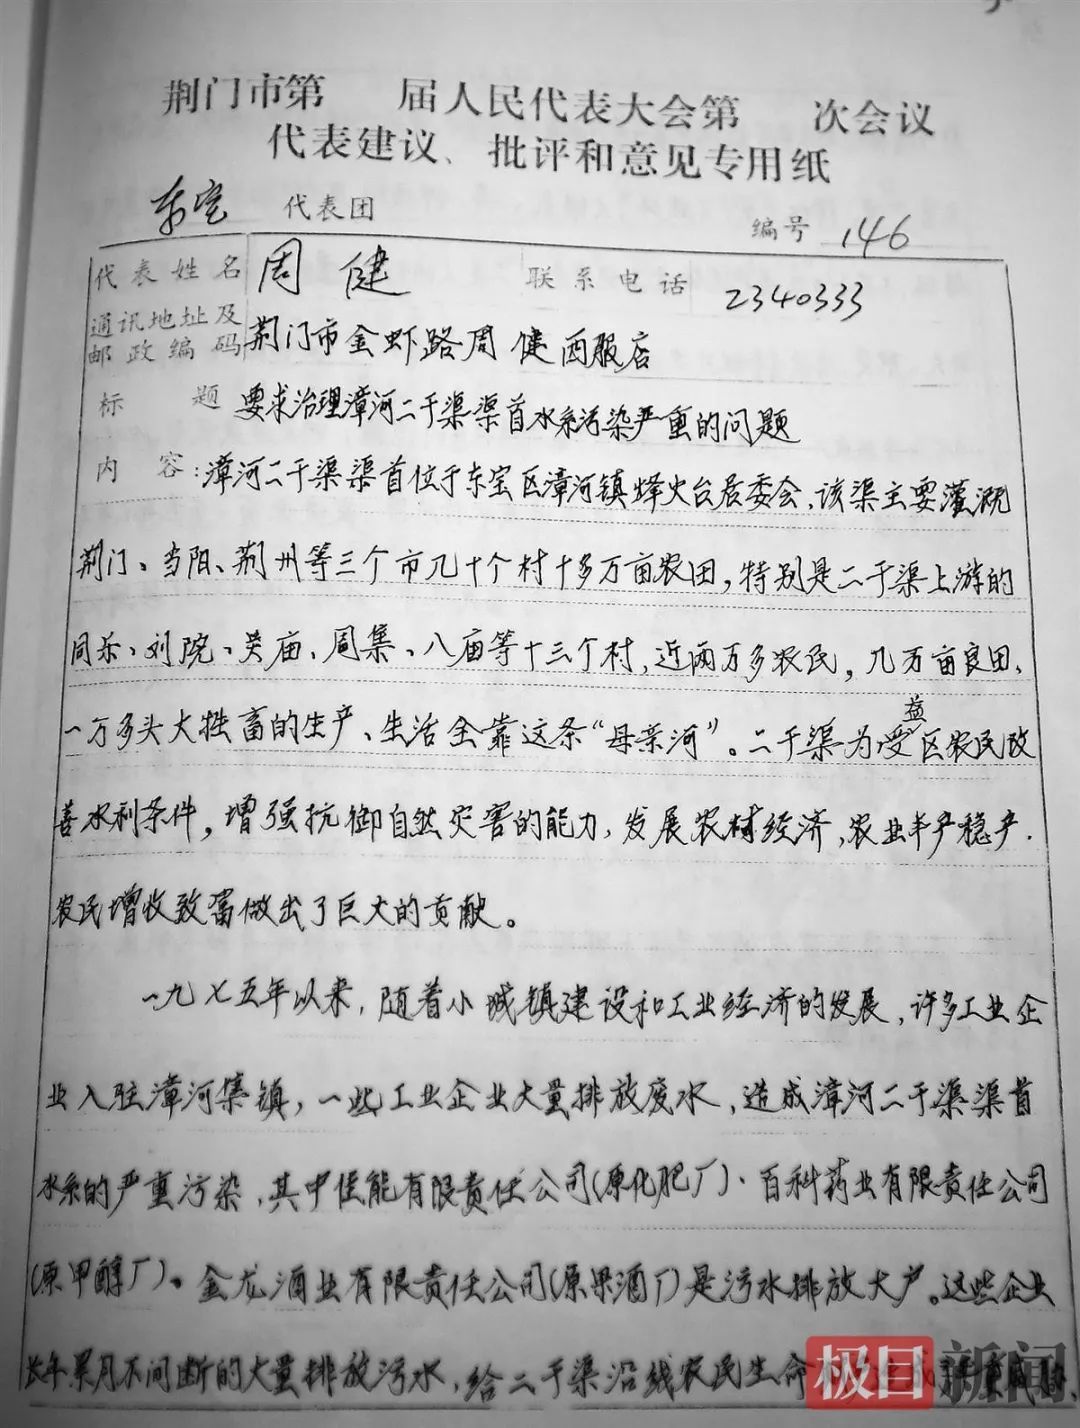 荆门市第 届人民代表大会第 次会议
代表建议、批评和意见专用纸
东宝 代表团 编号 146
代表姓名 周健 联系电话 2340333
通讯地址及
邮政编码 荆门市金虾路周健西服店
标题 要求治理漳河二干渠渠首水系污染严重的问题
内容：漳河二干渠渠首位于东宝区漳河镇烽火台居委会，该渠主要灌溉
荆门、当阳、荆州等三个市几十个村十多万亩农田，特别是二干渠上游的
同乐、刘院、吴庙、周集、八庙等十三个村，近两万多农民，几万亩良田、
一万多头大牲畜的生产、生活全靠这条“母亲河”。二干渠为受益区农民改
善水利条件，增强抗御自然灾害的能力，发展农村经济，农业丰产稳产.
农民增收致富做出了巨大的贡献。
一九七五年以来，随着小城镇建设和工业经济的发展，许多工业企
业入驻漳河集镇，一些工业企业大量排放废水，造成漳河二干渠渠首
水系的严重污染，其中佳能有限责任公司(原化肥厂)、百科药业有限责任公司
(原甲醇厂)、金龙酒业有限责任公司(原果酒厂)是污水排放大户。这些企业
长年累月不间断的大量排放污水，给二干渠沿线农民生命
极目新闻